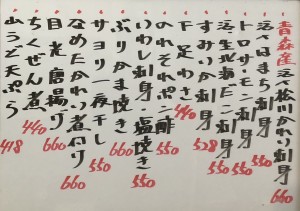 青森産活〆松川かれい刺身 660
活〆はまち刺身 550
トロサーモン刺身 550
活生北海だこ刺身 550
すみいか刺身 528
千足わさ 440
のれそれポン酢 550
いわし刺身・塩焼き 550
ぶりかま焼き 660
サヨリ一夜干し 550
なめたかれい煮付け 660
目光唐揚げ 660
ちくぜん煮 440
山うど天ぷら 418